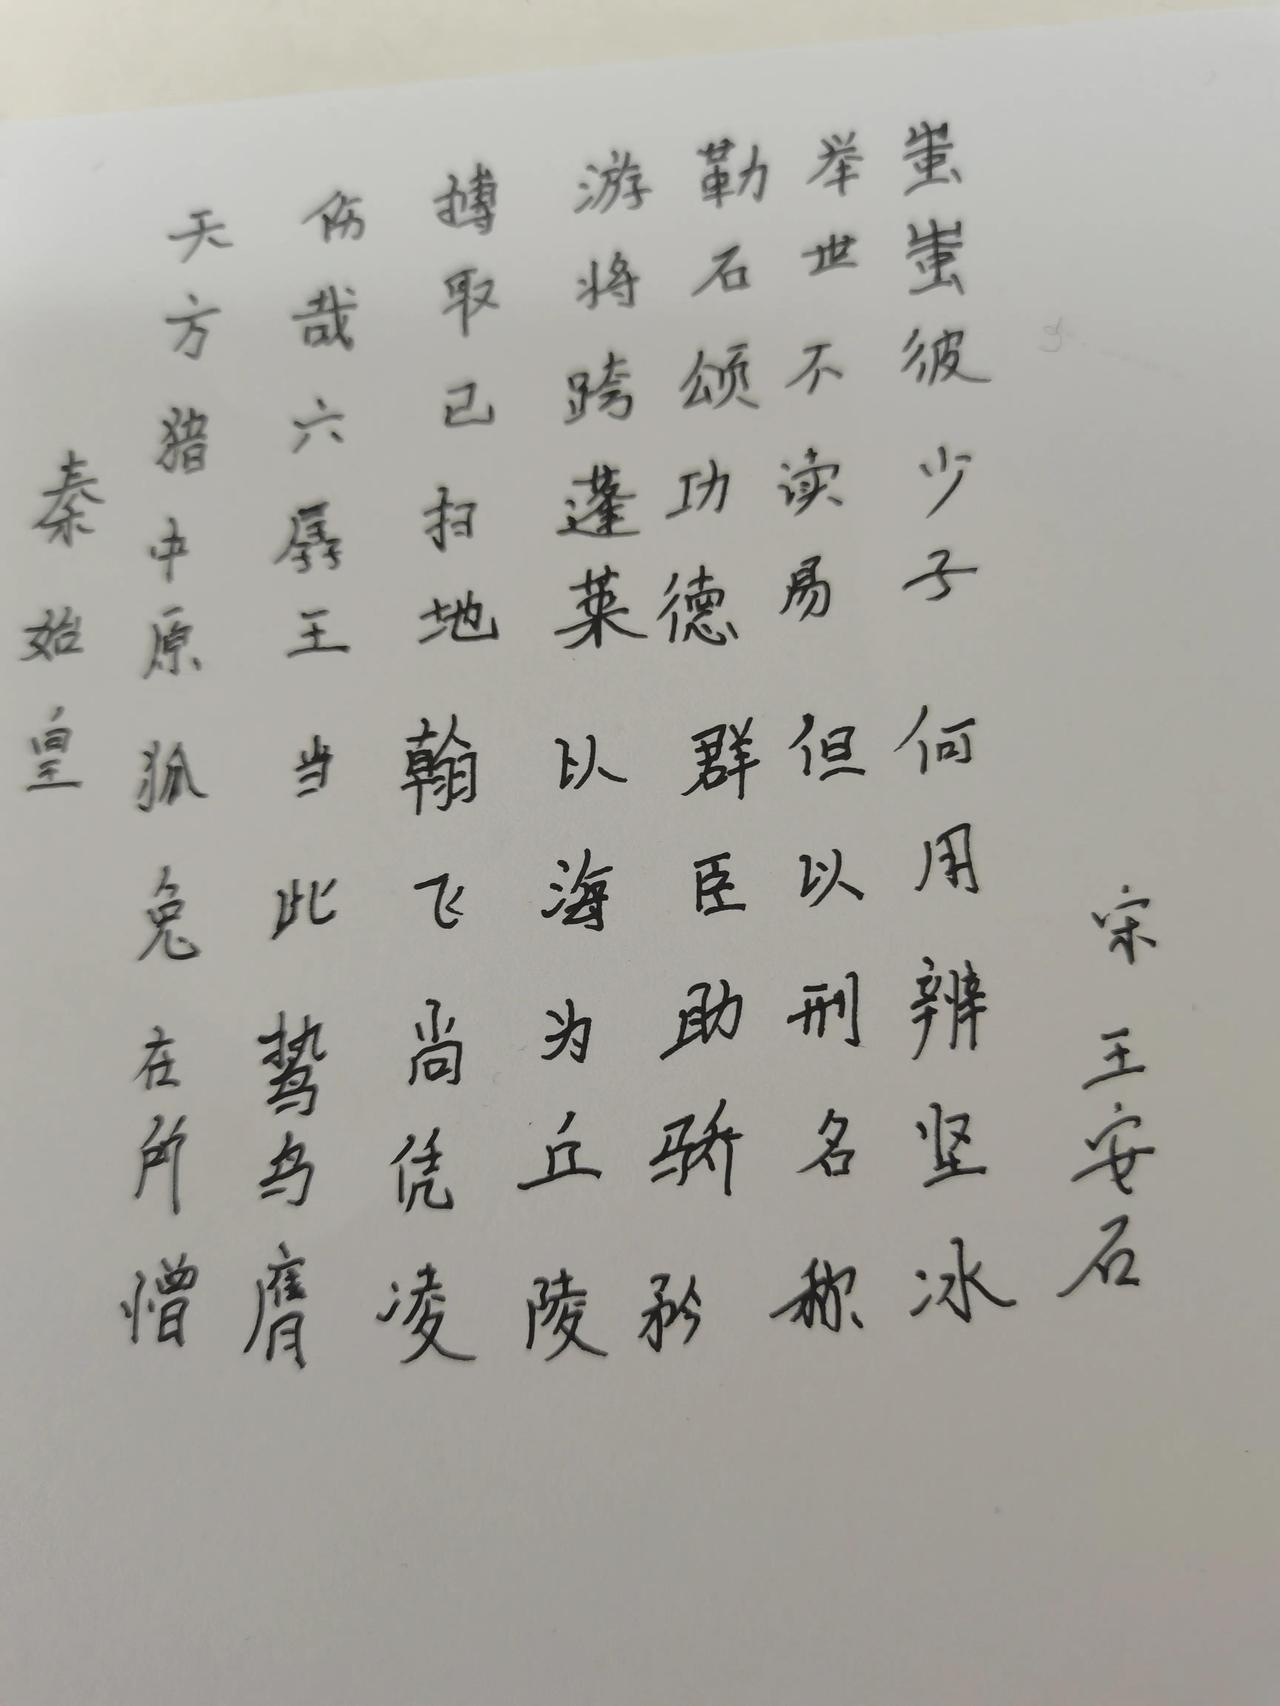 秦始皇
天方猎中原 狐兔在所憎
伤哉六孱王 当此鸷鸟膺
搏取已扫地 翰飞尚凭凌
游将跨蓬莱 以海为丘陵
勒石颂功德 群臣助骄矜
举世不读易 但以刑名称
蚩蚩彼少子 何用辨坚冰
宋 王安石